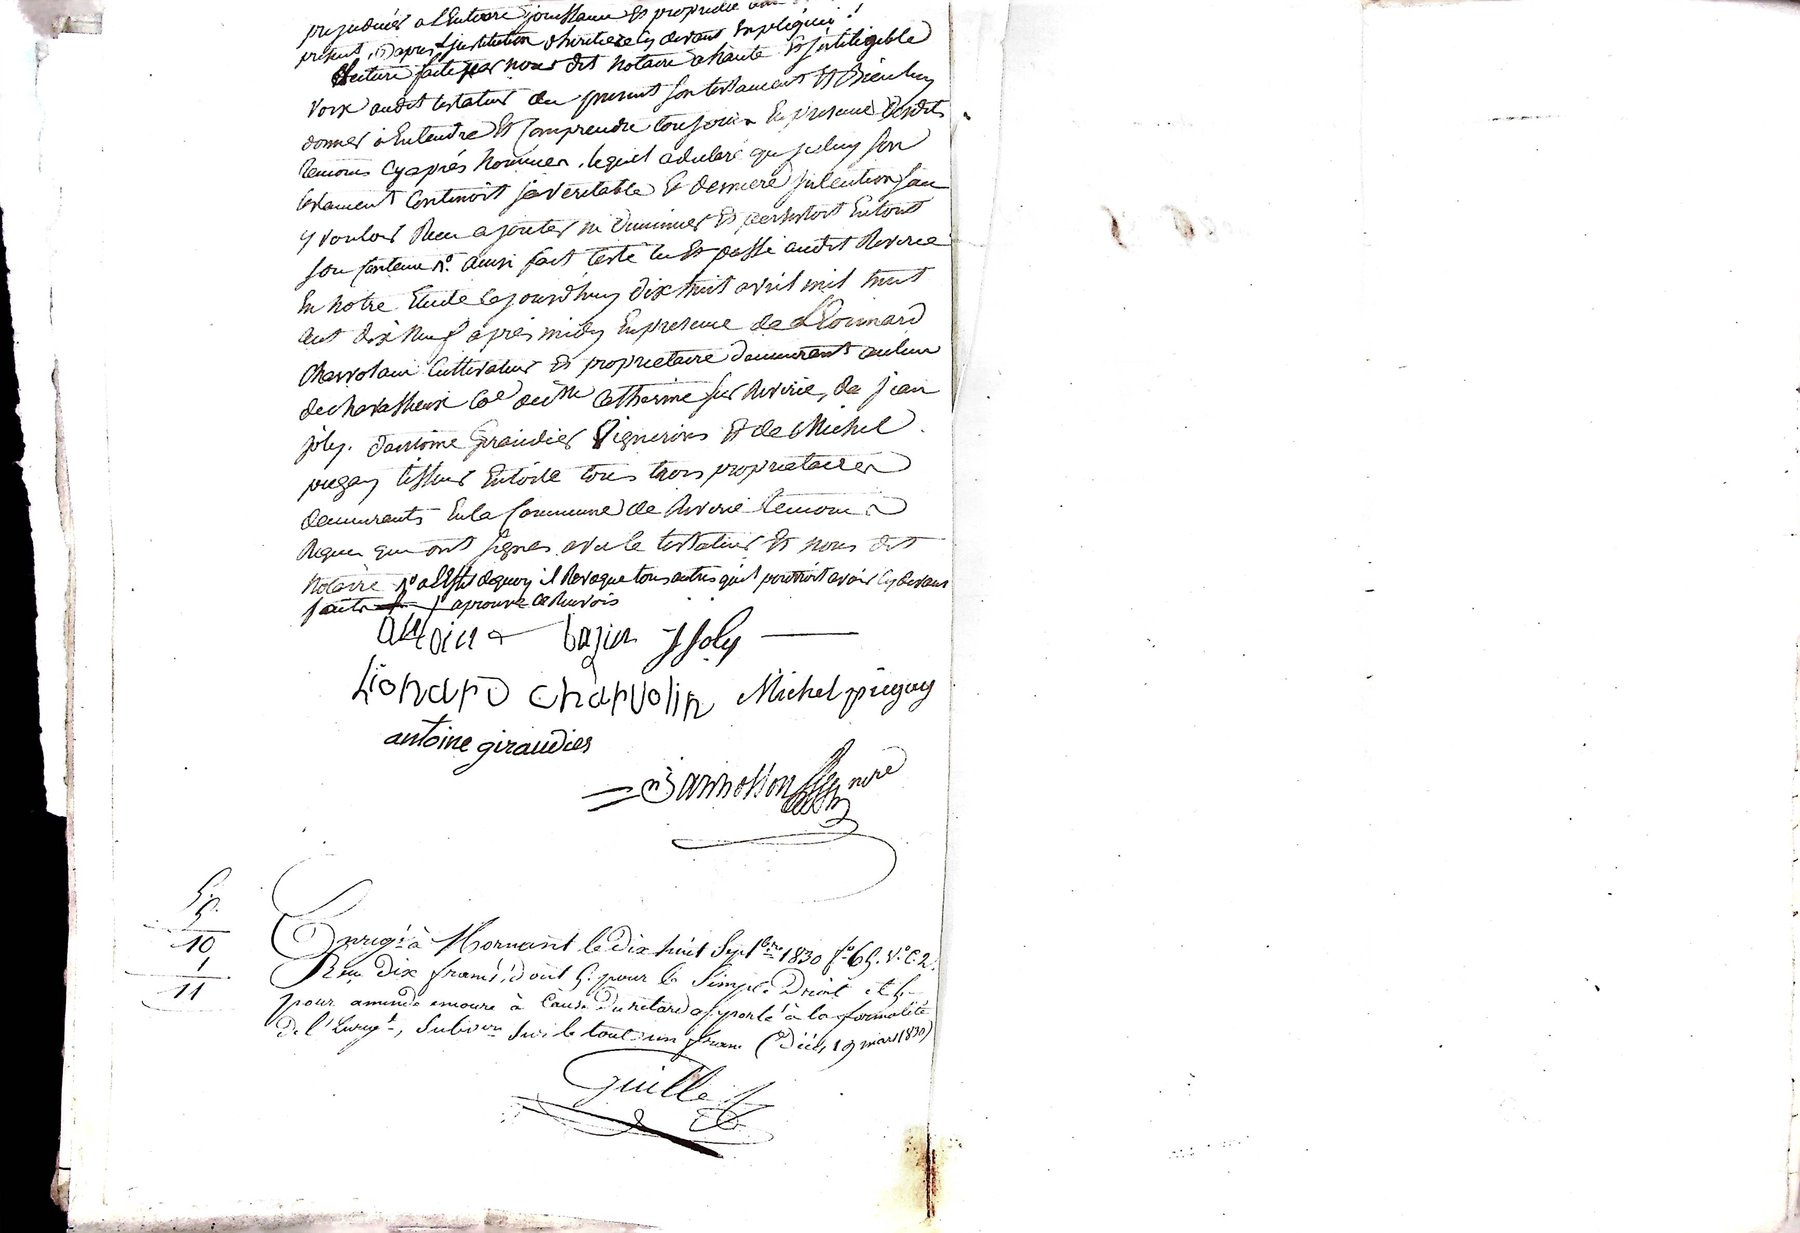 prejudicier a l'Entiere jouissance Et propriete
present, d'apres l'jnstitution d'heritiere Cy devant Expliquée ./.
Lecture faite par nous dit notaire a haute Et jnteligible
voix audit testateur du present son testament Et Bien luy
donner à Entendre Et Comprendre toujours En presence Desdits
temoins Cy après nommés, lequel a declaré que jceluy son
testament Contenoit sa veritable Et derniere jntention sans
y vouloir Rien ajouter ni diminuer Et persistoit En tout
son Contenu n.o ainsi fait testé lu Et passé audit Riverie
En notre Etude Cejourd'huy dix huit avril mil huit
cent dix neuf après midy En presence de Lionnard
Charvolain Cultivateur Et proprietaire demeurant au lieu
de chavasseux Coe de Ste Catherine sur Riverie, de jean
joly, d'antoine Giraudier Vignerons Et de Michel
pugay tisseur En toile tous trois proprietaires
demeurants En la Commune de Riverie temoins
Requis qui ont Signés avec le testateur Et nous dit
notaire n.o a l'Effet de quoy il Revoque tous autres qu'il pourroit avoir Cy devant
faits j'aprouve ce Renvois
antoine bazin J Joly
Lionard charvolin Michel piegay
antoine giraudier
Bannosson nre
5.
5.
10
1
11
Enregt. à Mornant le dix huit Septbre 1830 fo. 65. Vo. C. 2.
Reçu Dix francs, dont 5. pour le Simple Droit et 5
pour amende encourue à Cause du retard apporté à la formalité
De l'Enregt., Subvon Sur le tout un franc (Décès 19 mars 1830)
Guille